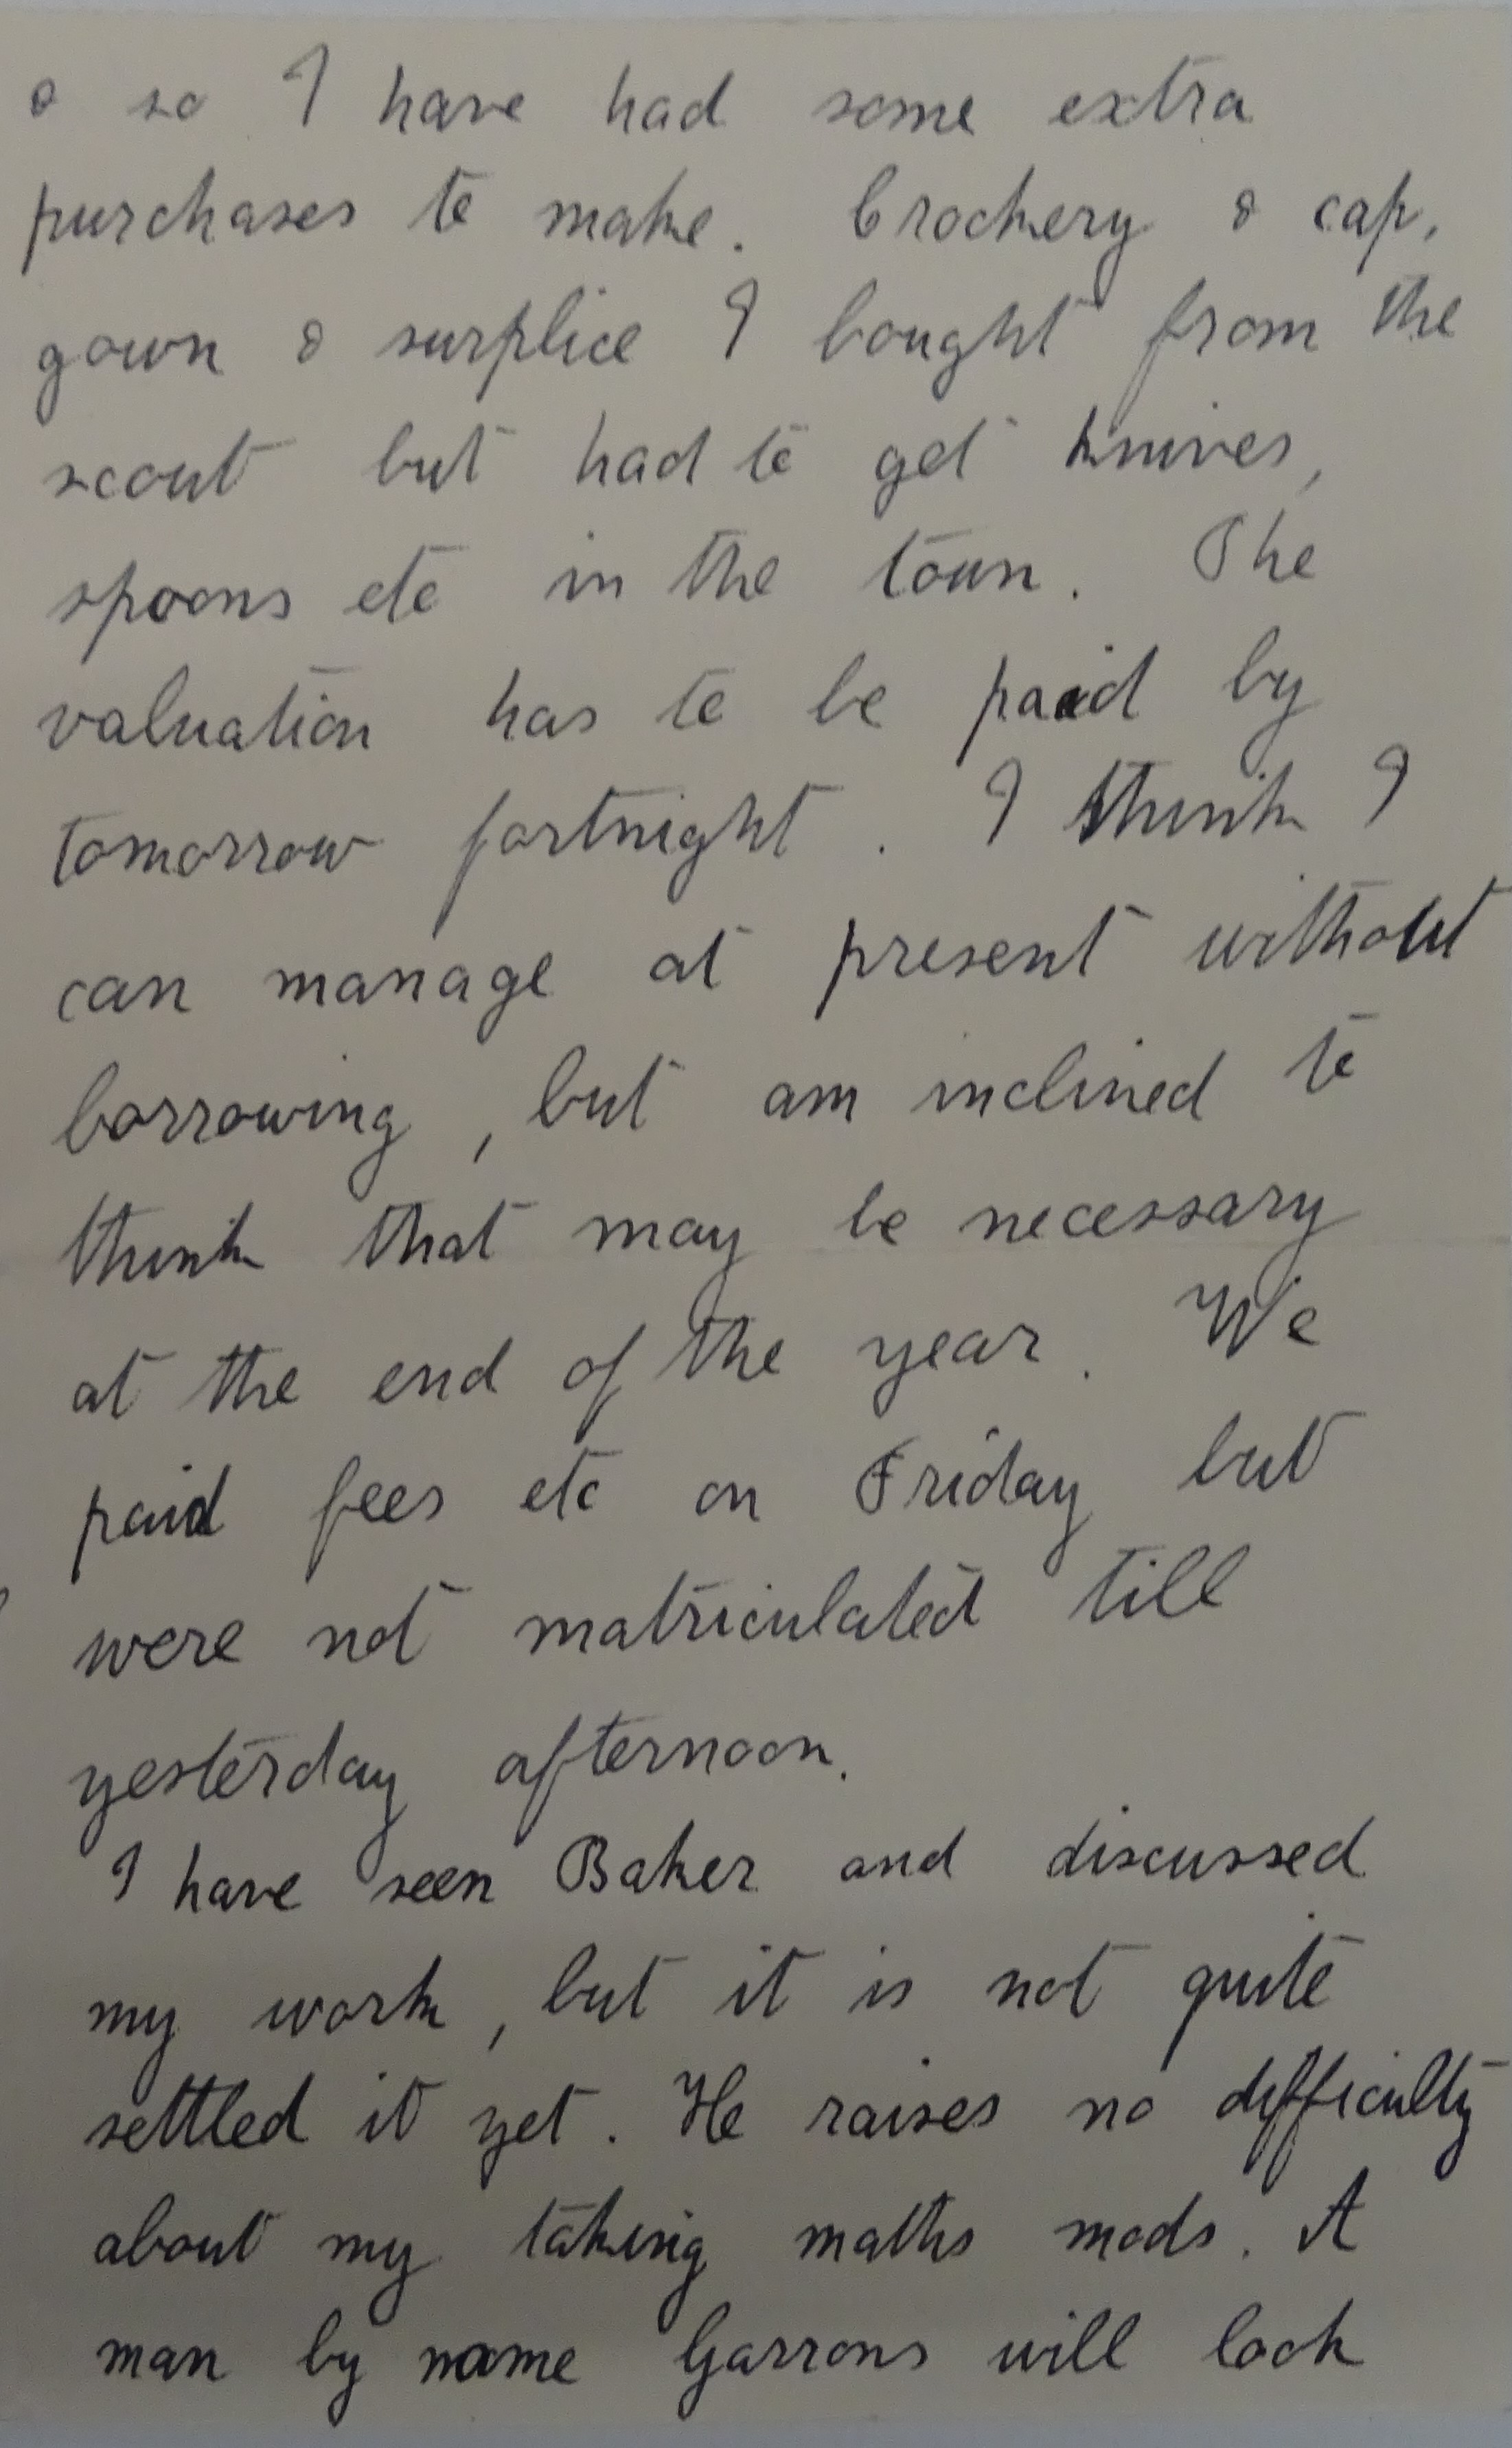 & so I have had some extra
purchases to make. Crockery & cap,
gown & surplice I bought from the
scout but had to get knives,
spoons etc in the town. The
valuation has to be paid by
tomorrow fortnight. I think I
can manage at present without
borrowing, but am inclined to
think that may be necessary
at the end of the year. We
paid fees etc on Friday but
were not matriculated till
yesterday afternoon.
I have seen Baker and discussed
my work, but it is not quite
settled it yet. He raises no difficulty
about my taking maths mods. A
man by name Garrons will look